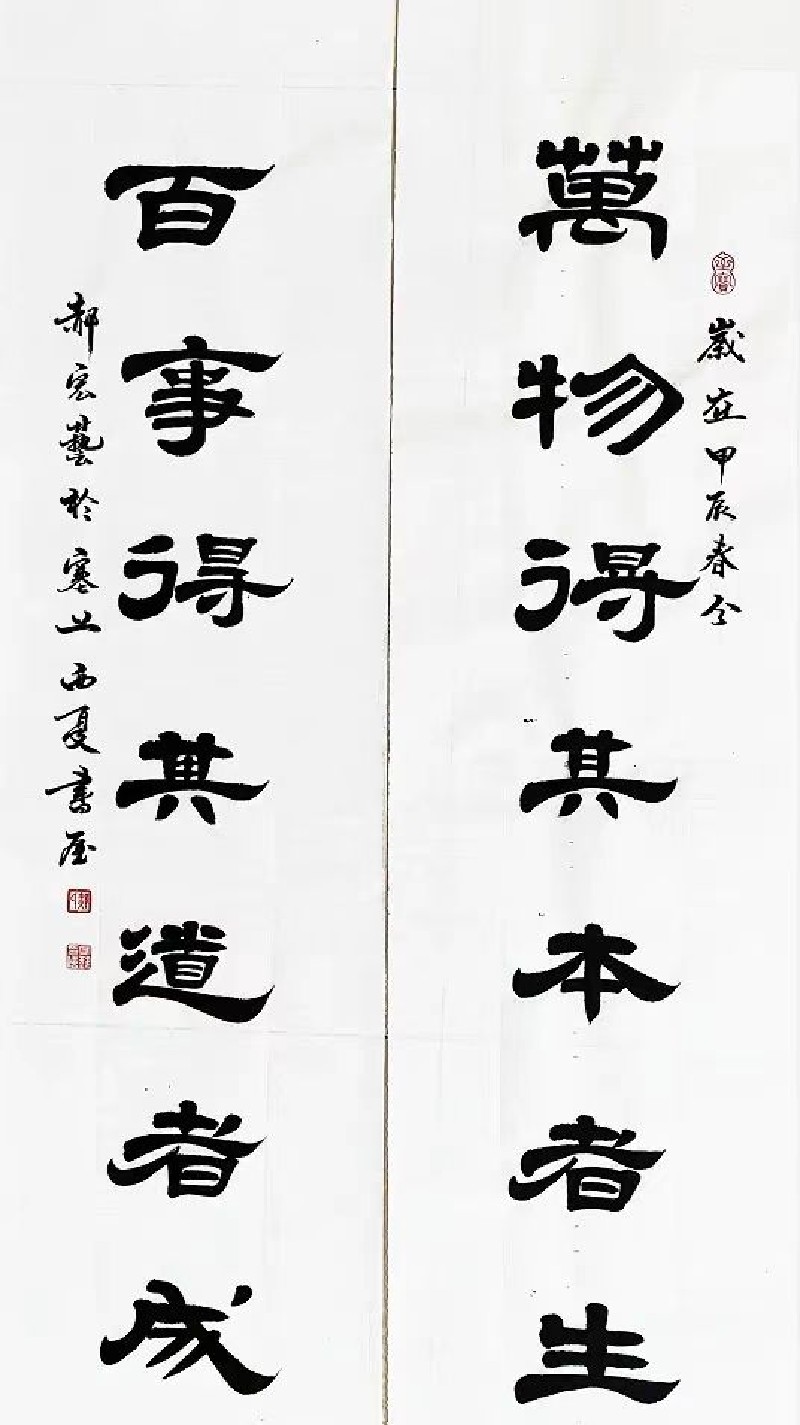 萬物得其本者生
歲在甲辰春今
百事得其道者成
郝宏藝於塞上西夏書屋